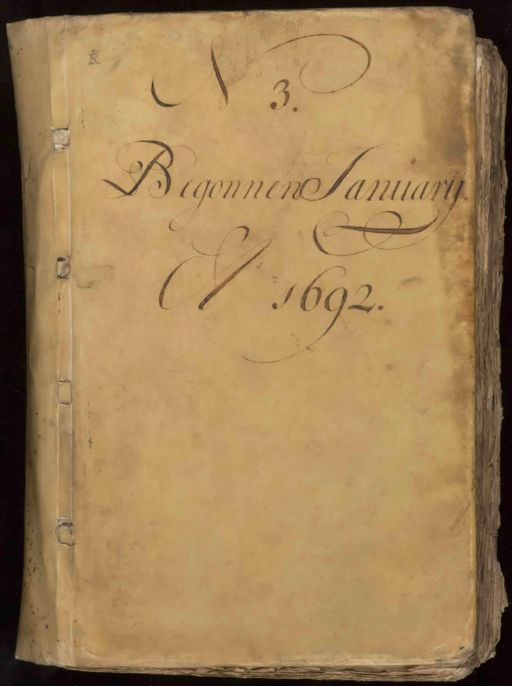 N 3.
Begonnen January.
A 1692.